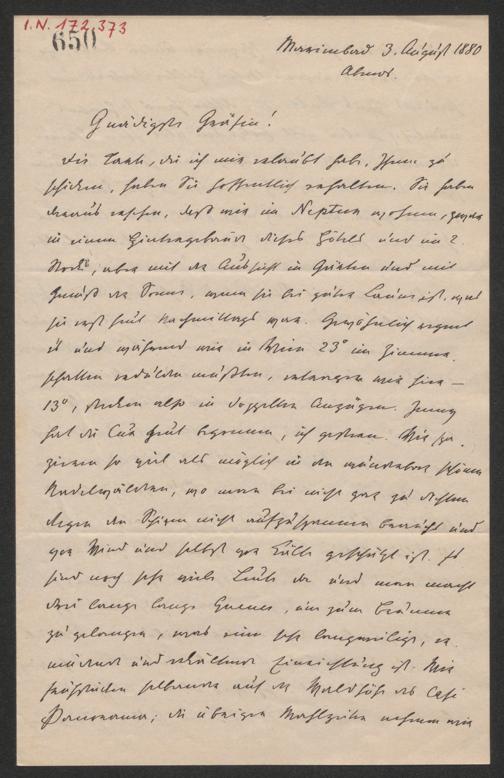 I.N. 172,373
650
Marienbad 3. August 1880
Abends.
Gnädigste Gräfin!
Die Karte, die ich mir erlaubt habe, Ihnen zu
schicken, haben Sie hoffentlich erhalten. Sie haben
daraus ersehen, daß wir im Neptun wohnen, zwar
in einem Hintergebäude dieses Hôtels und im 2.
Stock, aber mit der Aussicht in Gärten und mit
Genuß der Sonne, wenn sie bei guter Laune ist, was
sie erst heut Nachmittags war. Gewöhnlich regnet
es und während wir in Wien 23° im Zimmer
schlafen erdulden mußten, erlangen wir hier —
13°, stecken also in doppelten Anzügen. Jenny
hat die Cur heut begonnen, ich gestern. Wir
so viel als möglich in den wunderbar schönen
Nadelwäldern, wo man bei nicht gar zu dichtem
Regen den Schirm nicht aufzuspannen braucht und
vor Wind und selbst vor Kälte geschützt ist. Es
sind noch sehr viele Leute da und man macht
drei lange lange Queues, um zum Brunnen
zu gelangen, was eine sehr langweilige, er-
müdende und erkältende Einrichtung ist. Wir
frühstücken selbander auf der Waldhöhe des Café
Panorama; die übrigen Mahlzeiten nehmen wir